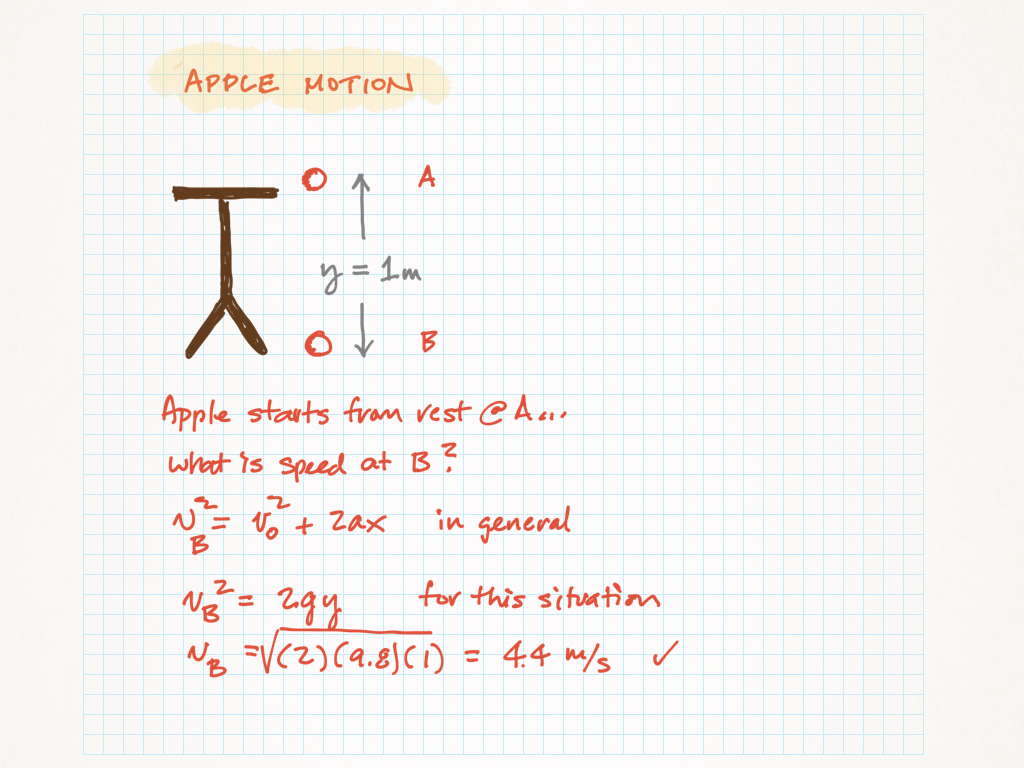 APPLE MOTION
A
y = 1m
B
Apple starts from rest @ A...
what is speed at B?
v_B² = v₀² + 2ax in general
v_B² = 2gy for this situation
v_B = √(2)(9.8)(1) = 4.4 m/s ✓